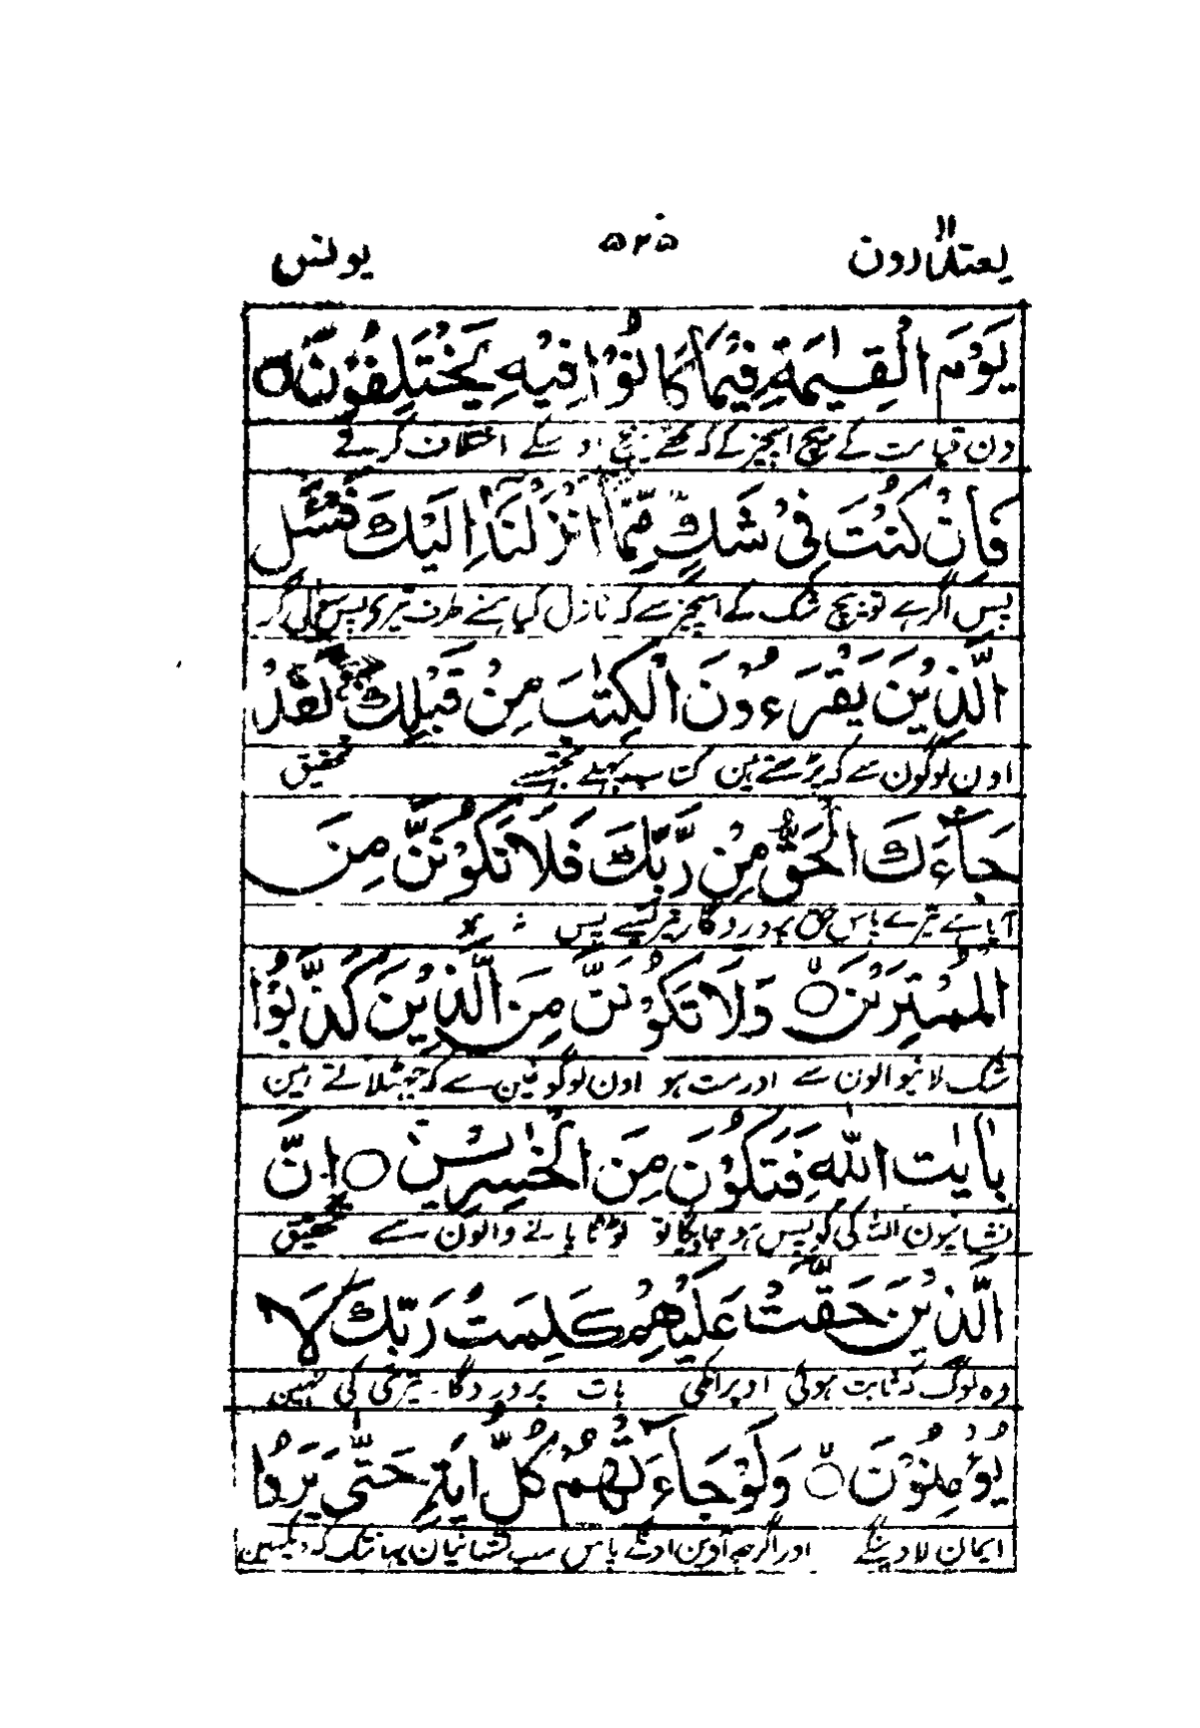 یعتذرون ۱۱ ۵۲۵ یونس
يَوْمَ الْقِيٰمَةِ فِيْمَا كَانُوْا فِيْهِ يَخْتَلِفُوْنَ ○
دن قیامت کے بیچ اسچیز کے کہ تھے بیچ اوسکے اختلاف کرتے
فَاِنْ كُنْتَ فِيْ شَكٍّ مِّمَّآ اَنْزَلْنَآ اِلَيْكَ فَسْـَٔلِ
پس اگر ہے تو بیچ شک کے اسچیز سے کہ نازل کیا ہمنے طرف تیری پس سوال کر
الَّذِيْنَ يَقْرَءُوْنَ الْكِتٰبَ مِنْ قَبْلِكَ ۚ لَقَدْ
اون لوگون سے کہ پڑھتے ہین کتاب پہلے تجھسے تحقیق
جَآءَكَ الْحَقُّ مِنْ رَّبِّكَ فَلَا تَكُوْنَنَّ مِنَ
آیا ہے تیرے پاس حق پروردگار تیرے سے پس
الْمُمْتَرِيْنَ ○ وَلَا تَكُوْنَنَّ مِنَ الَّذِيْنَ كَذَّبُوْا
شک لانیوالون سے اور مت ہو اون لوگونین سے کہ جھٹلاتے ہین
بِاٰيٰتِ اللّٰهِ فَتَكُوْنَ مِنَ الْخٰسِرِيْنَ ○ اِنَّ
نشانیون اللہ کی کو پس ہو جاویگا تو ٹوٹا پانے والون سے تحقیق
الَّذِيْنَ حَقَّتْ عَلَيْهِمْ كَلِمَتُ رَبِّكَ لَا
وہ لوگ کہ ثابت ہوئی اوپر انکی بات پروردگار تیری کی نہین
يُؤْمِنُوْنَ ○ وَلَوْ جَآءَتْهُمْ كُلُّ اٰيَةٍ حَتّٰى يَرَوُا
ایمان لاوینگے اور اگرچہ آوین اونکے پاس سب نشانیان یہانتک کہ دیکھین